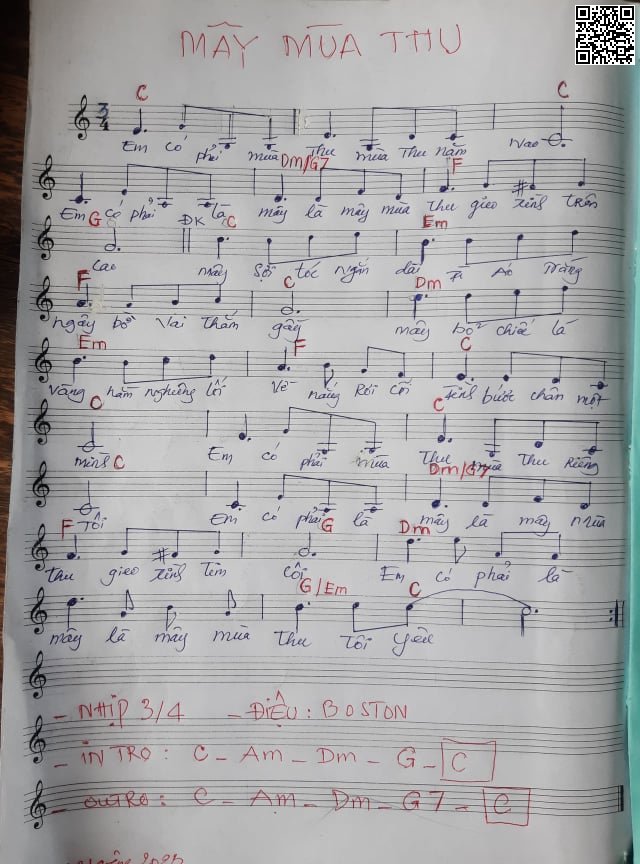 MÂY MÙA THU
C C
3/4
Em có phải mùa Thu mùa Thu năm nào
Dm/G7 F
Em có phải là mây là mây mùa thu gieo xinh trên
G ĐK C Em
cao mây sợi tóc ngắn dài Tà Áo Trắng
F C Dm
ngây bởi Vai Thắm gầy mây bỏ chiếc lá
Em F C
Vàng hằn nghiêng lối Về nắng Rơi cỗi bước chân một
C C
mình Em có phải mùa Thu mùa Thu Riêng
C Dm/G7
Tôi Em có phải là mây là mây mùa
F G Dm
thu gieo xinh Tim Côi Em có phải là
G/Em C
mây là mây mùa thu Tôi yêu
- NHỊP 3/4 - ĐIỆU: BOSTON
- INTRO: C - Am - Dm - G - C
- OUTRO: C - Am - Dm - G7 - C